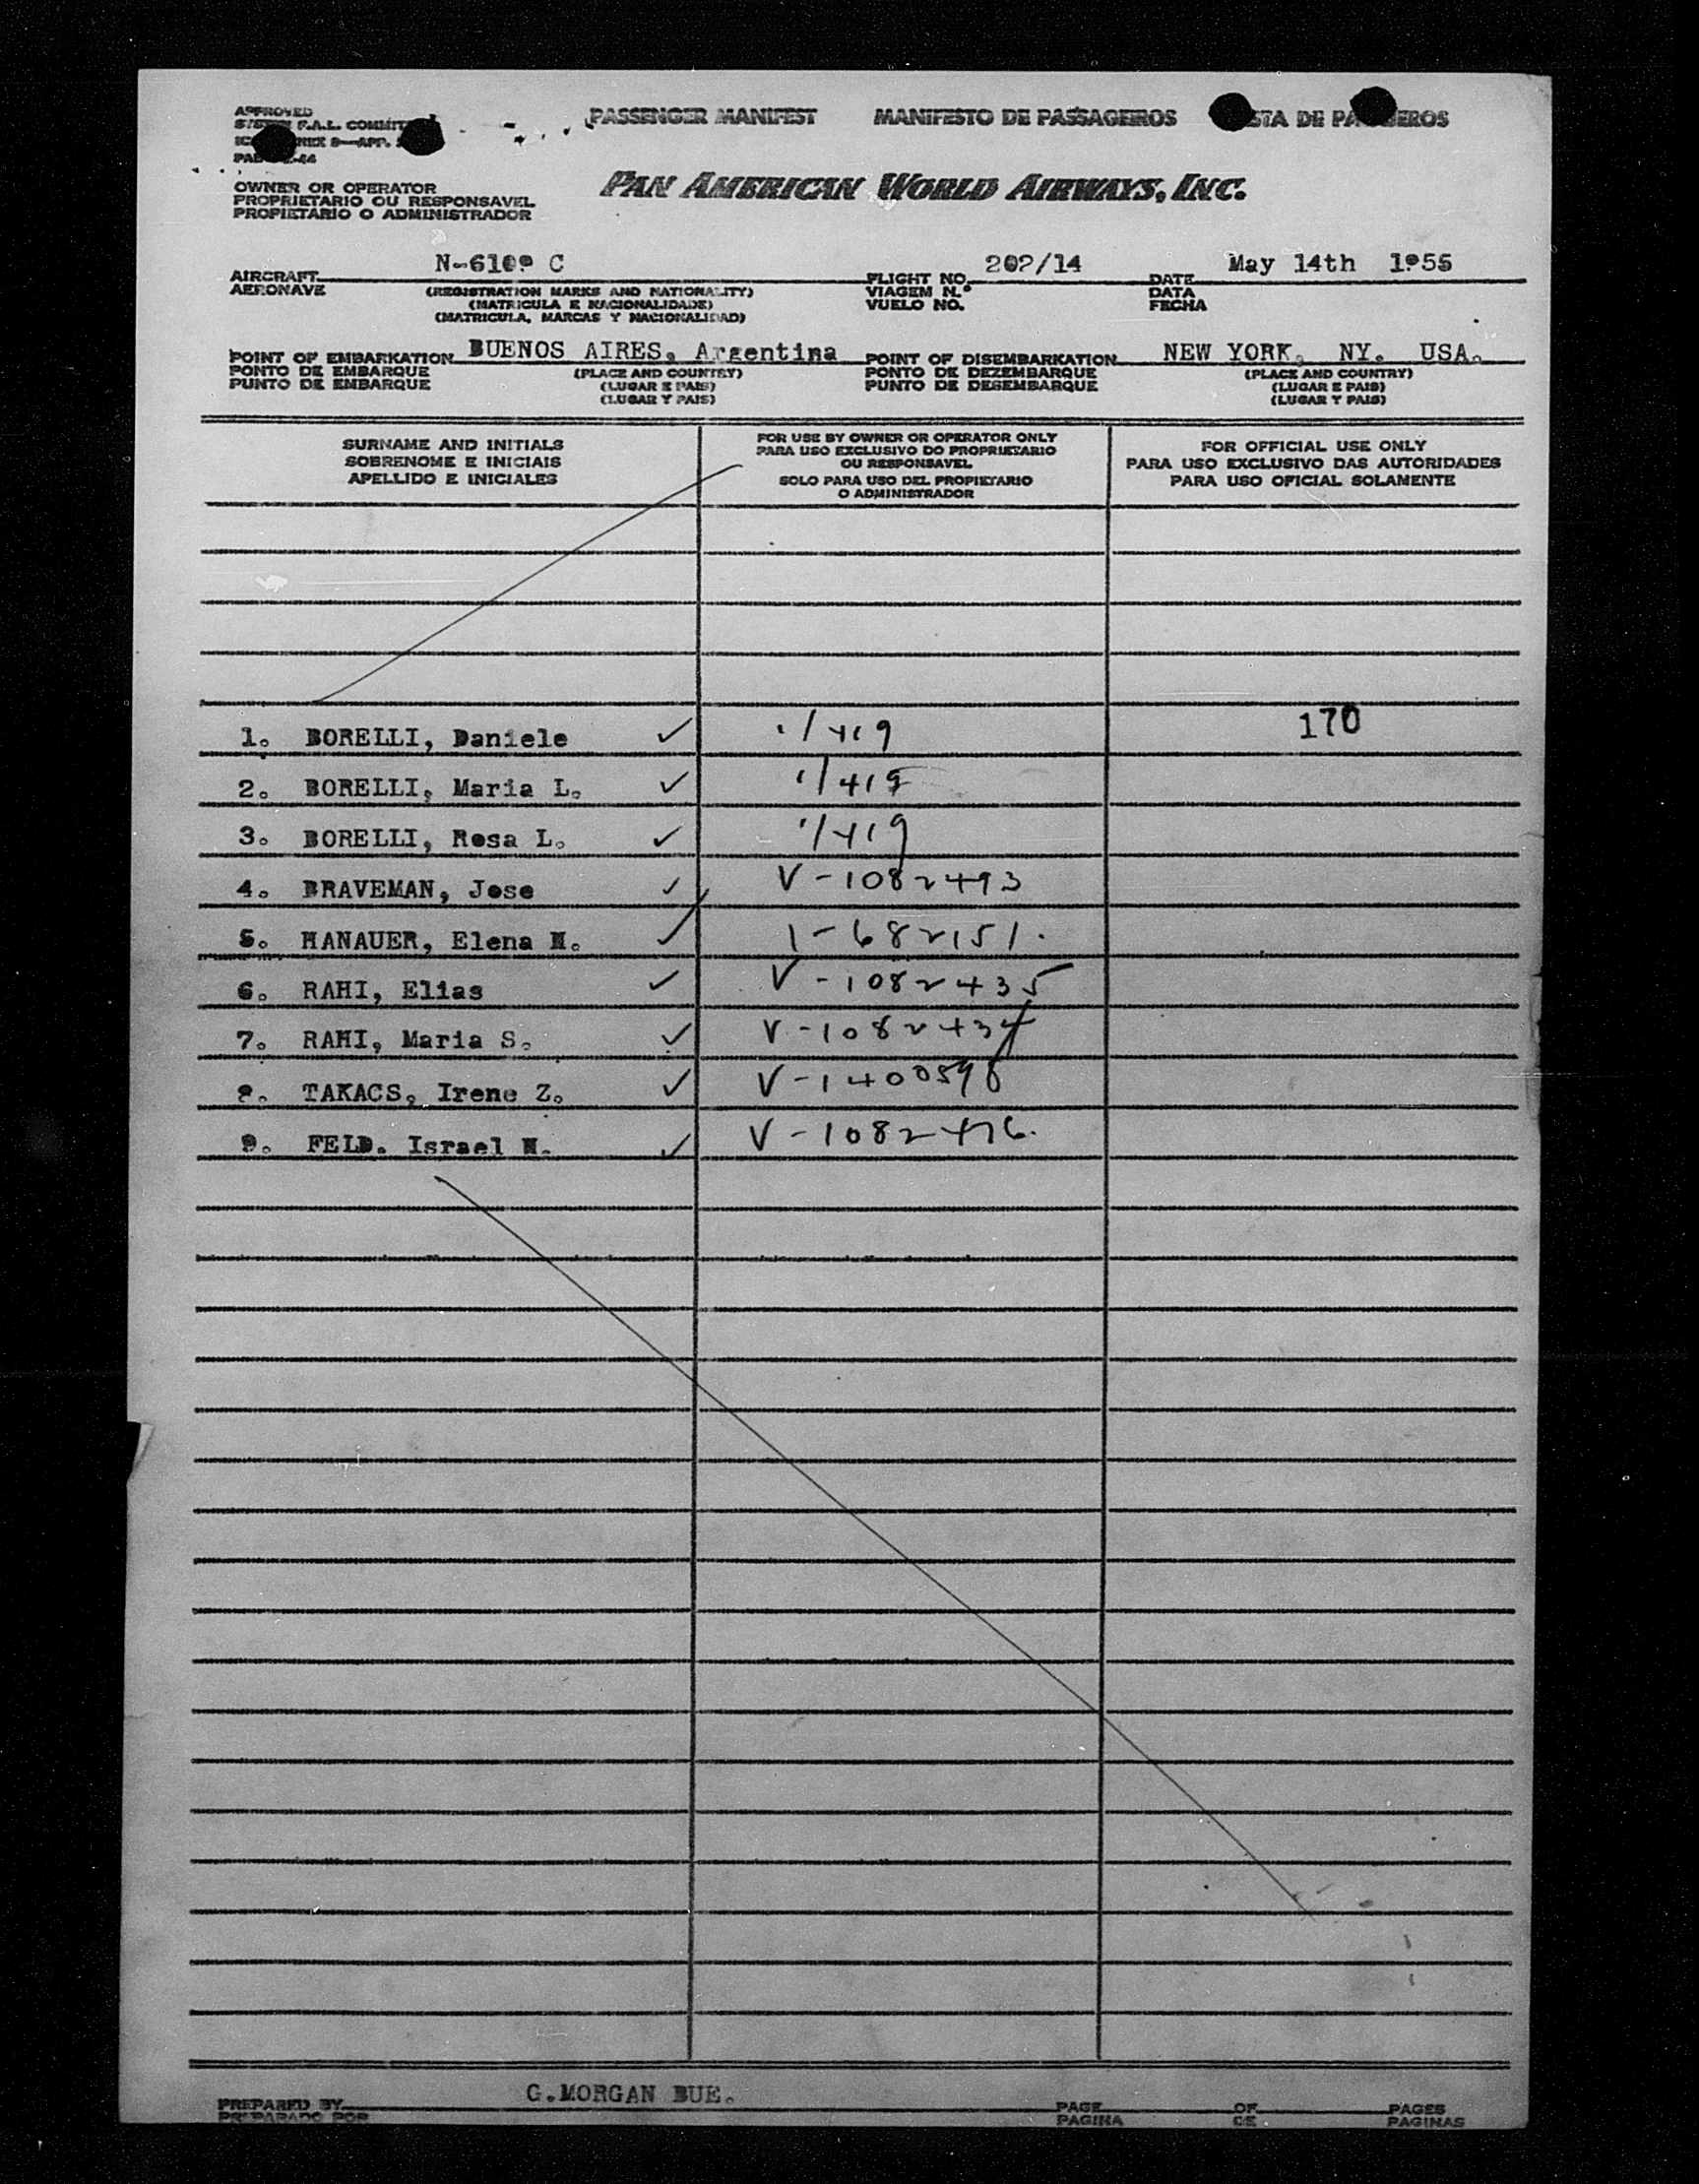 APPROVED
F.A.L.
PASSENGER MANIFEST MANIFESTO DE PASSAGEIROS DE
OWNER OR OPERATOR
PROPRIETARIO OU RESPONSAVEL
PROPIETARIO O ADMINISTRADOR
PAN AMERICAN WORLD AIRWAYS, INC.
N-6109 C 202/14 May 14th 1955
AIRCRAFT FLIGHT NO. DATE
AERONAVE (REGISTRATION MARKS AND NATIONALITY) VIAGEM N.º DATA
(MATRICULA E NACIONALIDADE) VUELO NO. FECHA
(MATRICULA, MARCAS Y NACIONALIDAD)
BUENOS AIRES, Argentina NEW YORK, NY. USA.
POINT OF EMBARKATION POINT OF DISEMBARKATION
PONTO DE EMBARQUE (PLACE AND COUNTRY) PONTO DE DEZEMBARQUE (PLACE AND COUNTRY)
PUNTO DE EMBARQUE (LUGAR E PAIS) PUNTO DE DESEMBARQUE (LUGAR E PAIS)
(LUGAR Y PAIS) (LUGAR Y PAIS)
SURNAME AND INITIALS
SOBRENOME E INICIAIS
APELLIDO E INICIALES
FOR USE BY OWNER OR OPERATOR ONLY
PARA USO EXCLUSIVO DO PROPRIETARIO
OU RESPONSAVEL
SOLO PARA USO DEL PROPIETARIO
O ADMINISTRADOR
FOR OFFICIAL USE ONLY
PARA USO EXCLUSIVO DAS AUTORIDADES
PARA USO OFICIAL SOLAMENTE
1. BORELLI, Daniele ✓ 1/419 170
2. BORELLI, Maria L. ✓ 1/419
3. BORELLI, Rosa L. ✓ 1/419
4. BRAVEMAN, Jose ✓ V-1082493
5. HANAUER, Elena M. ✓ 1-682151.
6. RAHI, Elias ✓ V-1082435
7. RAHI, Maria S. ✓ V-1082434
8. TAKACS, Irene Z. ✓ V-1400598
9. FELD. Israel M. ✓ V-1082476.
G.MORGAN BUE.
PREPARED BY PAGE OF PAGES
PREPARADO POR PAGINA DE PAGINAS